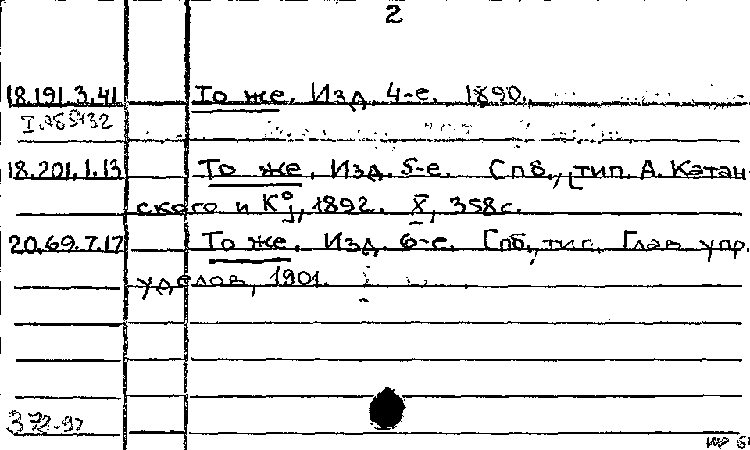 2
18.191.3.41 То же. Изд. 4-е. 1890.
18.201.1.13 То же. Изд. 5-е. Спб., тип. А. Катан-
ского и К°, 1892. X, 358 с.
20.69.7.17 То же. Изд. 6-е. Спб., тип. Глав. упр.
уделов, 1901.
372-97